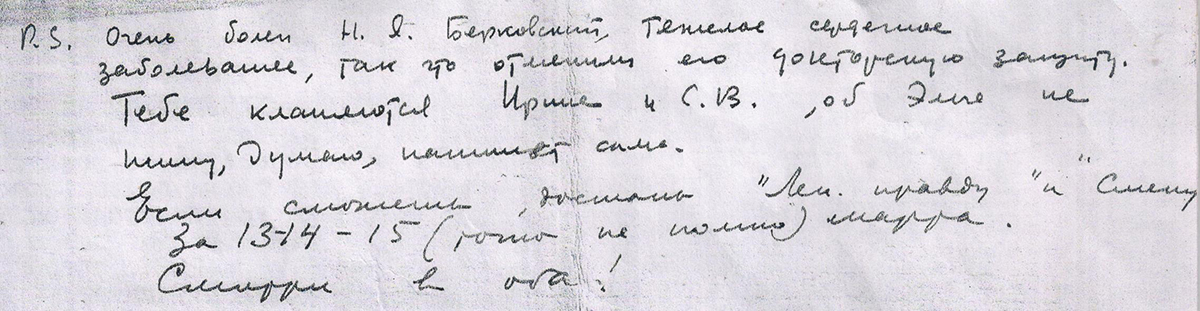 P.S. Очень болен Н. Я. Берковский, тяжелое сердечное
заболевание, так что отменили его докторскую защиту.
Тебе кланяются Ирина и С.В., об Элле не
пишу, думаю, напишет сама.
Если сможешь, достань "Лен. правду" и "Смену
За 13-14-15 (точно не помню) марта.
Смотри в оба!